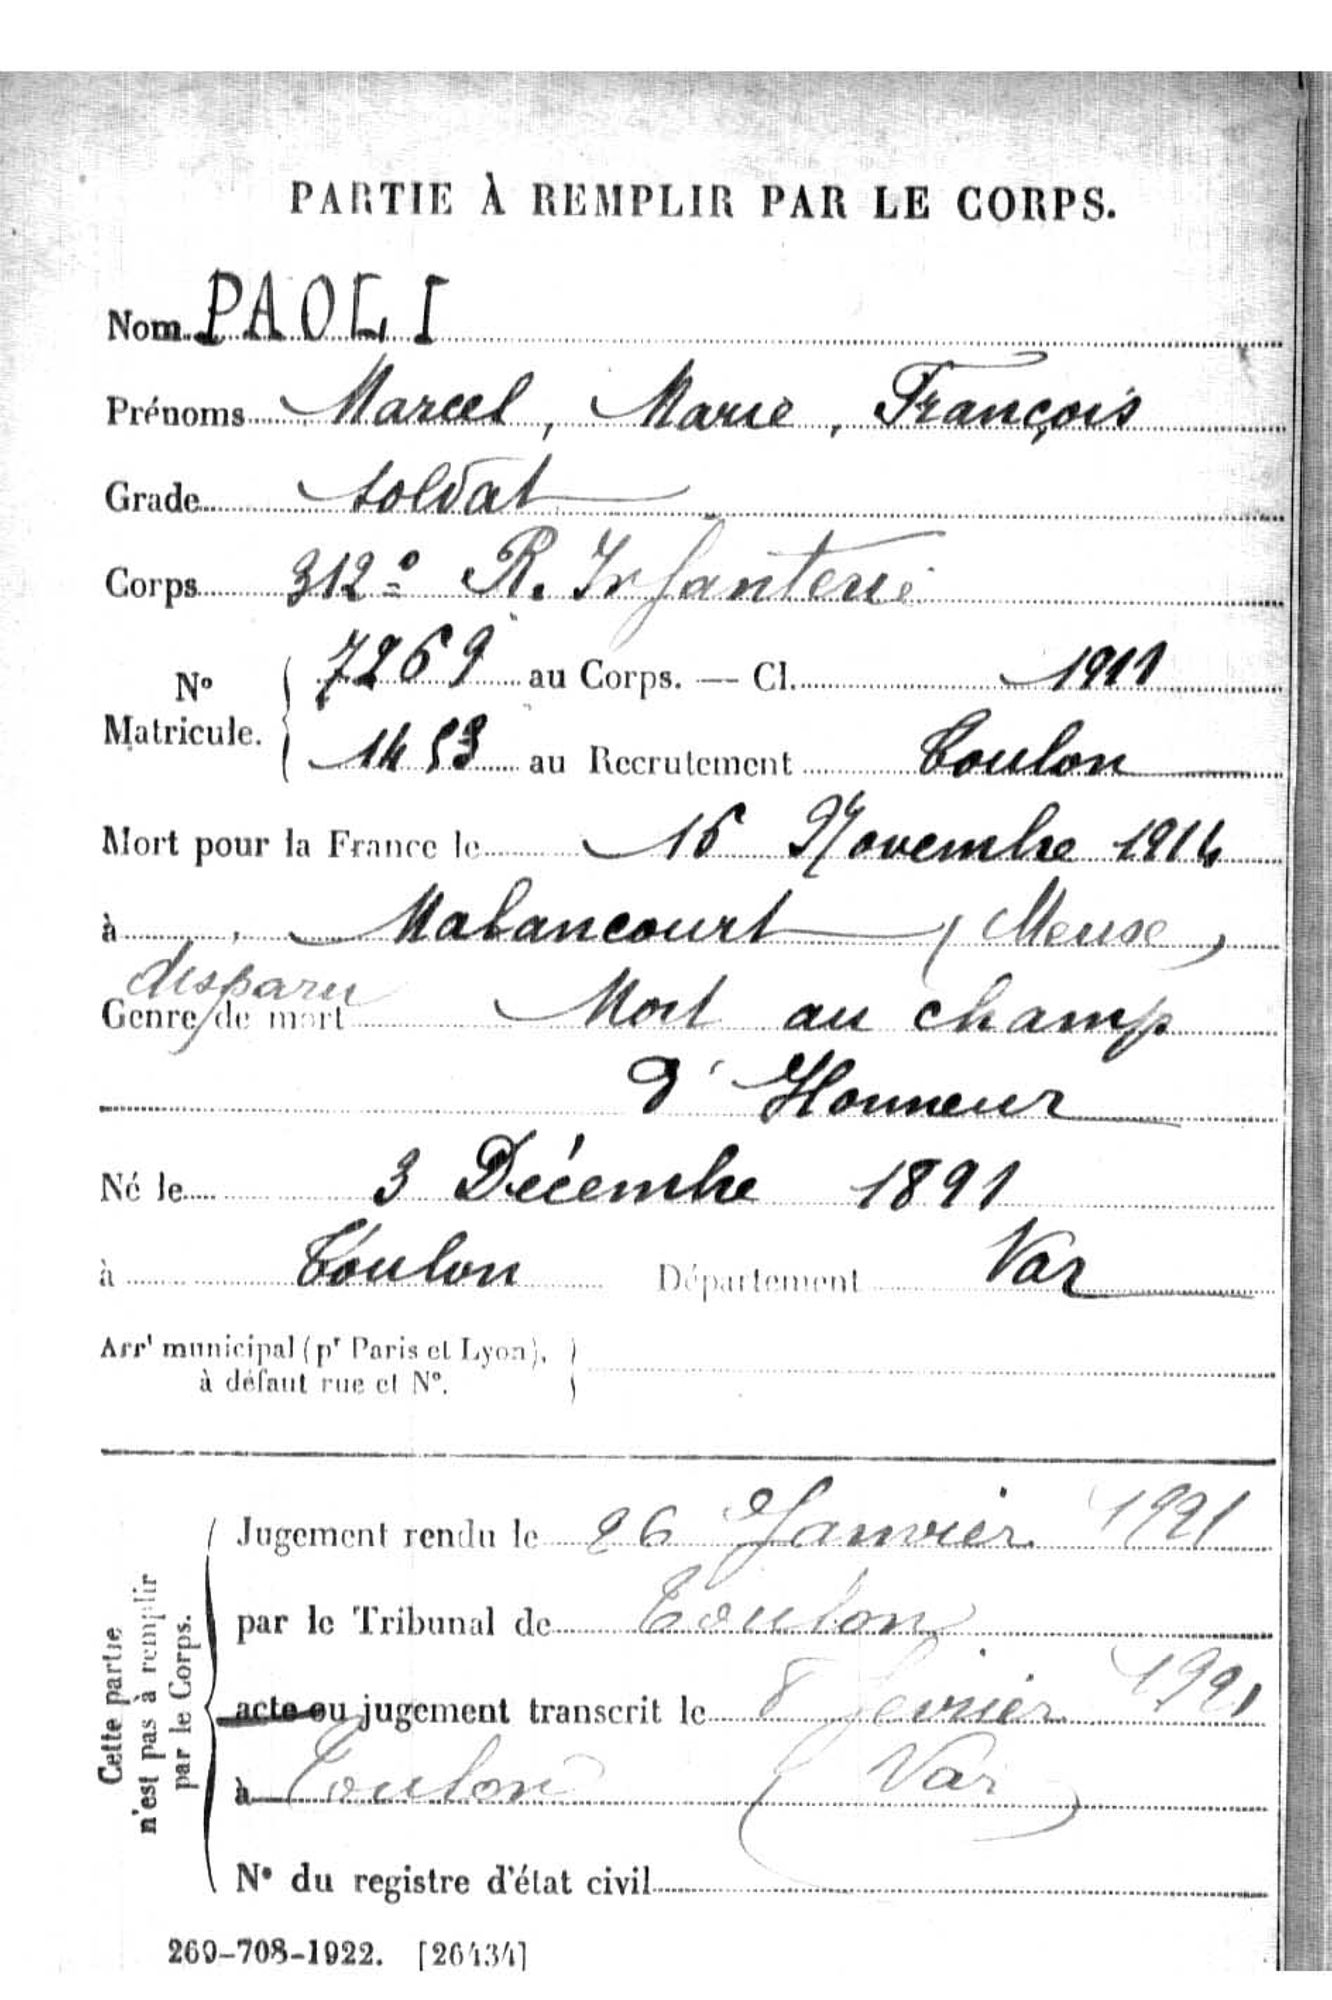 PARTIE À REMPLIR PAR LE CORPS.
Nom PAOLI
Prénoms Marcel, Marie, François
Grade soldat
Corps 312e R. Infanterie
No Matricule. 7269 au Corps. — Cl. 1911
1453 au Recrutement Toulon
Mort pour la France le 16 Novembre 1914
à Malancourt (Meuse)
disparu
Genre de mort Mort au champ
d'Honneur
Né le 3 Décembre 1891
à Toulon Département Var
Arrt municipal (pr Paris et Lyon),
à défaut rue et No.
Cette partie
n'est pas à remplir
par le Corps.
Jugement rendu le 26 Janvier 1921
par le Tribunal de Toulon
acte ou jugement transcrit le 8 février 1921
à Toulon (Var)
No du registre d'état civil
269-708-1922. [26434]